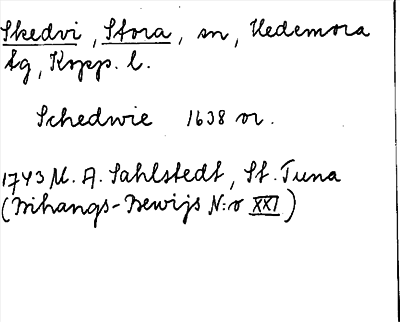 Skedvi, Stora, sn, Hedemora
tg, Kopp. l.
Schedwie 1638 or.
1743 M. A. Sahlstedt, St. Tuna
(Bihangs-Bewijs N:o XXI)